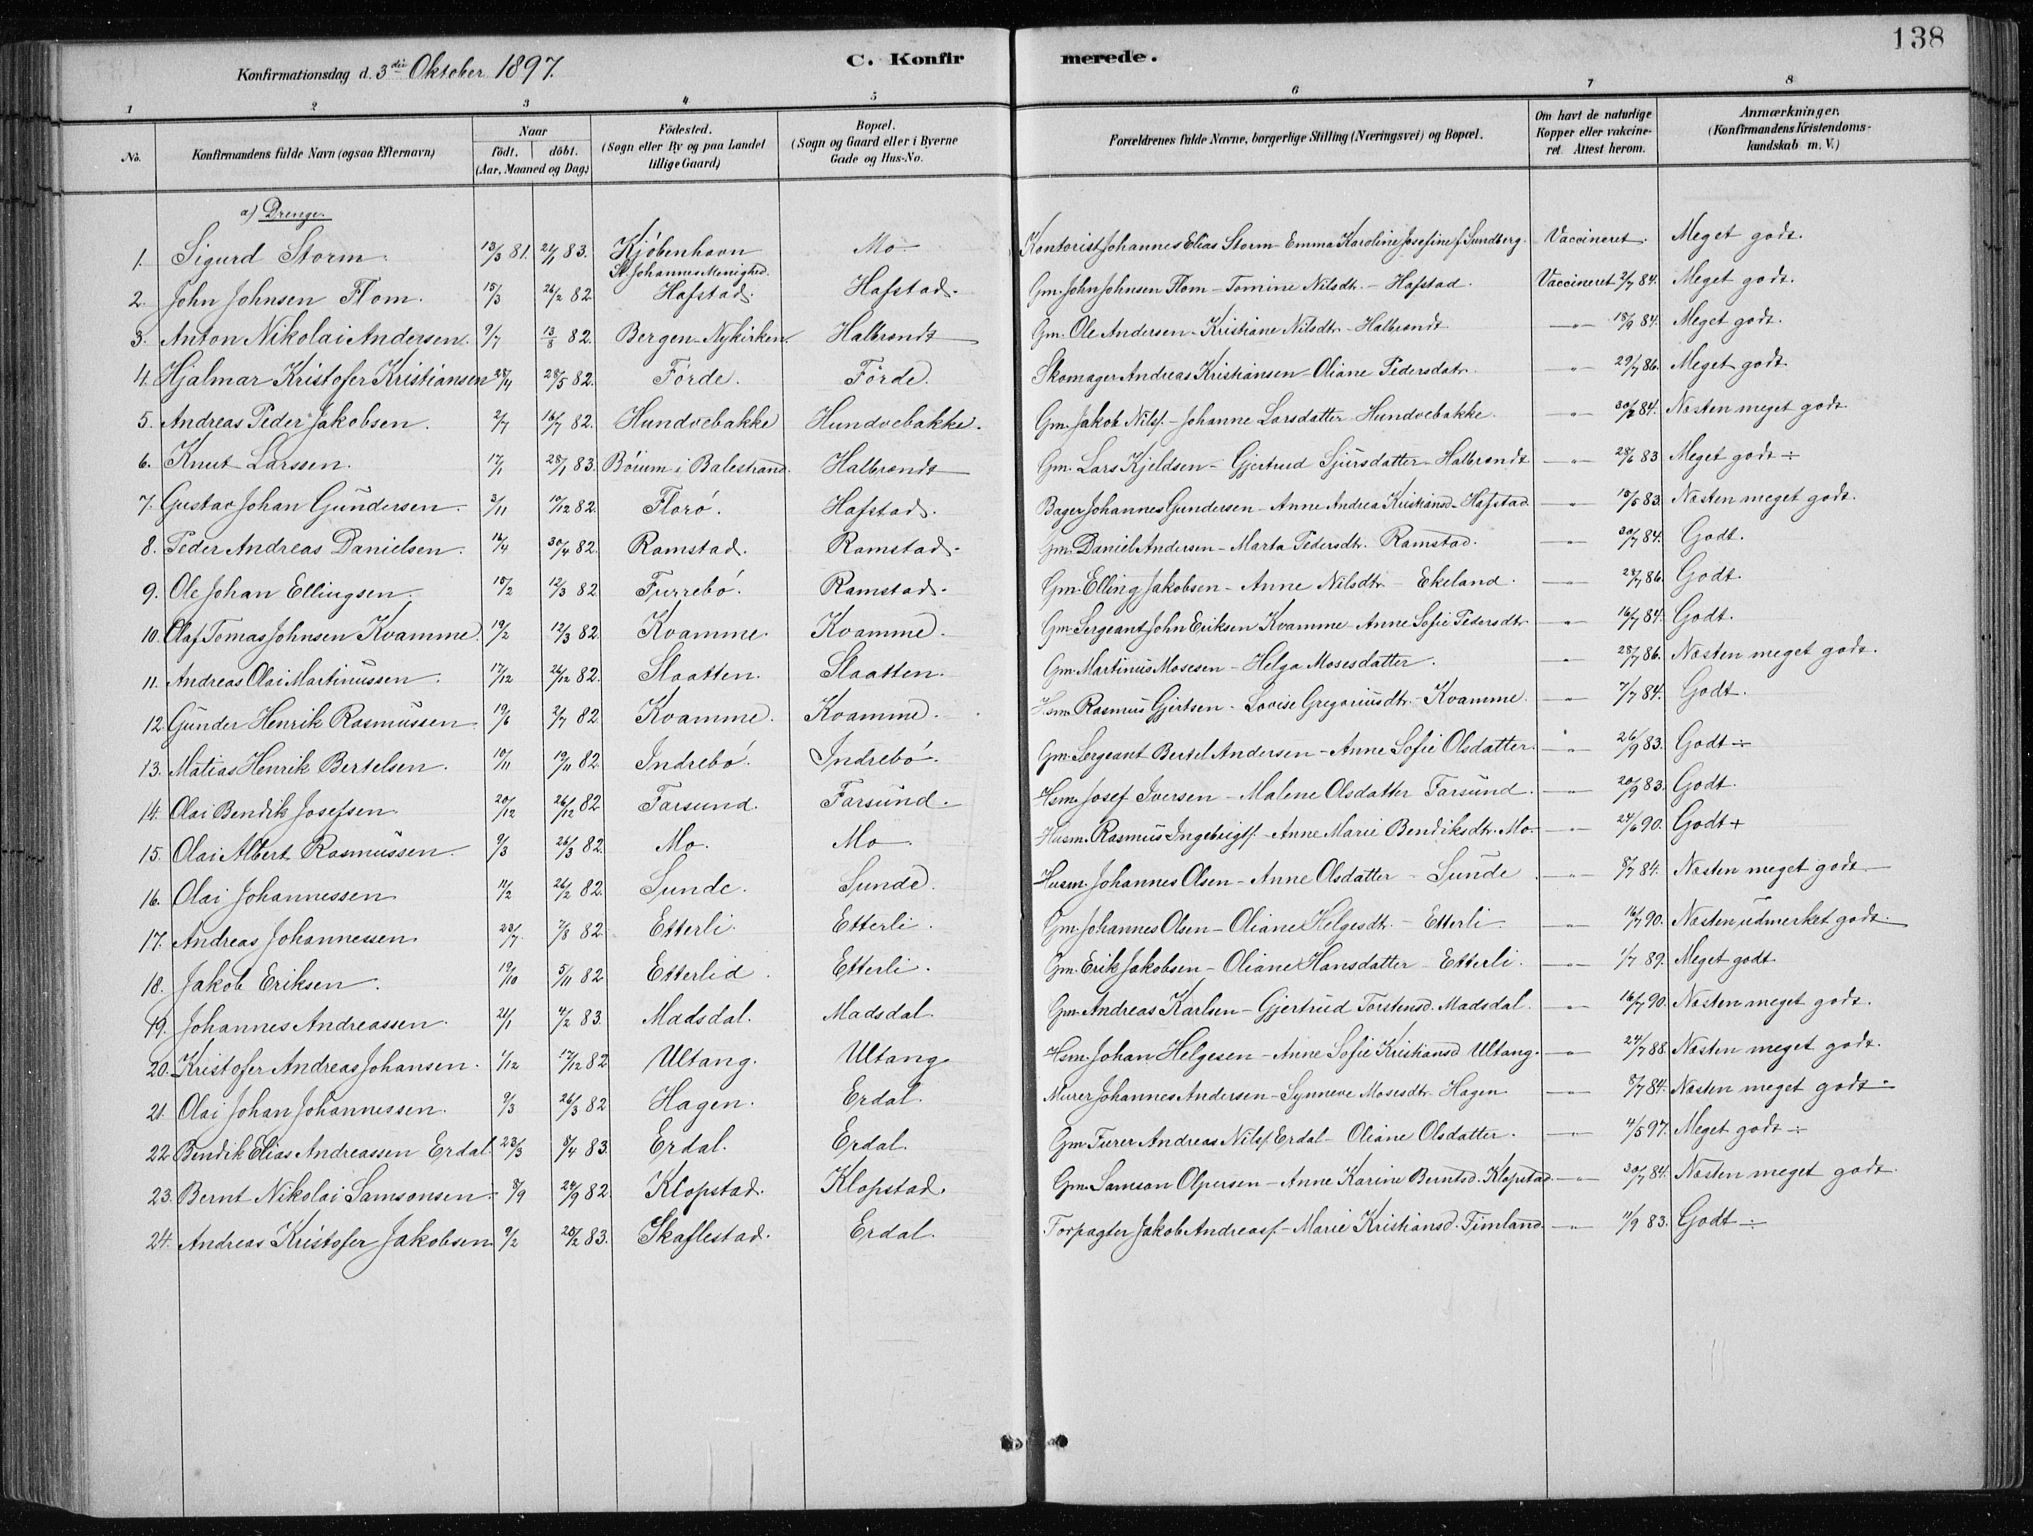 138
Konfirmationsdag d. 3die Oktober 1897. C. Konfirmerede.
1 2 3 4 5 6 7 8
No. Konfirmandens fulde Navn (ogsaa Efternavn) Naar födt. döbt. (Aar, Maaned og Dag) Födested. (Sogn eller By og paa Landet tillige Gaard) Bopæl. (Sogn og Gaard eller i Byerne Gade og Hus-No. Forældrenes fulde Navne, borgerlige Stilling (Næringsvei) og Bopæl. Om havt de naturlige Kopper eller vakcineret. Attest herom. Anmærkninger. (Konfirmandens Kristendomskundskab m. V.)
a) Drenge.
1. Sigurd Storm. 13/3 81. 21/1 83. Kjöbenhavn St. Johannes Menighed. Mo Kontorist Johannes Elias Storm - Emma Karoline Josefine f. Sundberg. Vaccineret. Meget godt.
2. John Johnsen Flom. 15/3 26/2 82 Hafstad. Hafstad. Gm. John Johnsen Flom - Tomine Nilsdtr. - Hafstad. Vaccineret 2/7 84. Meget godt.
3. Anton Nikolai Andersen. 9/7 13/8 82. Bergen - Nykirken. Halbrendt Gm. Ole Andersen - Kristiane Nilsdtr - Halbrendt - " - 18/9 84. Meget godt.
4. Hjalmar Kristofer Kristiansen 28/4 28/5 82. Förde. Förde. Skomager Andreas Kristiansen - Oliane Pedersdatr. - " - 29/7 86. Meget godt
5. Andreas Peder Jakobsen. 2/7 16/7 82. Hundvebakke Hundvebakke. Gm. Jakob Nilss. - Johanne Larsdatter Hundvebakke. - " - 84. Næsten meget godt
6. Knut Larssen. 17/1 28/1 83. Böium i Balestrand. Halbrendt Gm. Lars Kjeldsen - Gjertrud Sjursdatter - Halbrendt - " - 28/6 83 Meget godt ÷
7. Gustav Johan Gundersen. 3/11 10/12 82. Florö. Hafstad. Bager Johannes Gundersen - Anne Andrea Kristiansd. - Hafstad. - " - 15/5 83. Næsten meget godt.
8. Peder Andreas Danielsen. 16/4 30/4 82. Ramstad. Ramstad. Gm. Daniel Andersen - Marta Pedersdtr. Ramstad. - " - 30/7 84. Godt.
9. Ole Johan Ellingsen. 10/2 12/3 82 Furrebö. Ramstad. Gm. Elling Jakobsen - Anne Nilsdtr - Ekeland. - " - 28/7 86. Godt.
10. Olaf Tomas Johnsen Kvamme. 19/2 12/3 82. Kvamme. Kvamme. Gm. Sergeant John Eriksen Kvamme - Anne Sofie Pedersdtr. - " - 16/7 84. Godt.
11. Andreas Olai Martinussen. 17/12 26/12 82. Slaatten. Slaatten. Gm. Martinus Mosesen - Helga Mosesdatter. - " - 28/7 86. Næsten meget godt.
12. Gunder Henrik Rasmussen 19/6 2/7 82. Kvamme. Kvamme. Hsm. Rasmus Gjertsen - Lovise Gregoriusdtr. Kvamme. - " - 7/7 84. Godt.
13. Matias Henrik Bertelsen. 10/11 19/11 82. Indrebö. Indrebö. Gm. Sergeant Bertel Andersen - Anne Sofie Olsdatter. " 26/9 83. Godt ÷
14. Olai Bendik Josefsen 20/12 26/12 82. Farsund. Farsund. Hsm. Josef Iversen - Malene Olsdatter Farsund. - " - 20/9 83. Godt.
15. Olai Albert Rasmussen. 9/3 26/3 82. Mo. Mo. Husm. Rasmus Ingebrigts. - Anne Marie Bendiksdtr. Mo - " - 24/6 90. Godt +
16. Olai Johannessen 11/2 26/2 82. Sunde. Sunde. Husm. Johannes Olsen - Anne Olsdatter - Sunde. - " - 8/7 84. Næsten meget godt
17. Andreas Johannessen. 23/7. 7/8 82. Etterli. Etterli. Gm. Johannes Olsen - Oliane Helgesdtr. - Etterli. - " - 16/7 90. Næsten udmerket godt.
18. Jakob Eriksen. 19/10 5/11 82. Etterlid. Etterli. Gm. Erik Jakobsen - Oliane Hansdatter - Etterli. - " - 1/7 89. Meget godt
19. Johannes Andreassen. 21/1 4/2 83. Madsdal. Madsdal. Gm. Andreas Karlsen - Gjertrud Torstensd. Madsdal. - " - 16/7 90. Næsten meget godt.
20. Kristofer Andreas Johansen. 1/12 17/12 82 Ultang. Ultang Hsm. Johan Helgesen - Anne Sofie Kristiansd. Ultang. - " - 24/7 88. Næsten meget godt.
21. Olai Johan Johannessen. 9/3 26/3 82 Hagen. Erdal. Murer Johannes Andersen - Synneve Mosesdtr. Hagen - " - 8/7 84. Næsten meget godt
22 Bendik Elias Andreassen Erdal. 23/3 8/4 83. Erdal. Erdal. Gm. Furer Andreas Nilss. Erdal - Oliane Olsdatter. - " - 4/5 97. Meget godt ÷
23. Bernt Nikolai Samsonsen 8/9 24/9 82. Klopstad. Klopstad. Gm. Samson Olpersen - Anne Karine Berntsd. Klopstad - " - 30/7 84. Næsten meget godt.
24. Andreas Kristofer Jakobsen. 9/2 25/2 83. Skaflestad. Erdal. Forpagter Jakob Andreass. - Marie Kristiansd. Fimland. - " - 11/9 83. Godt ÷